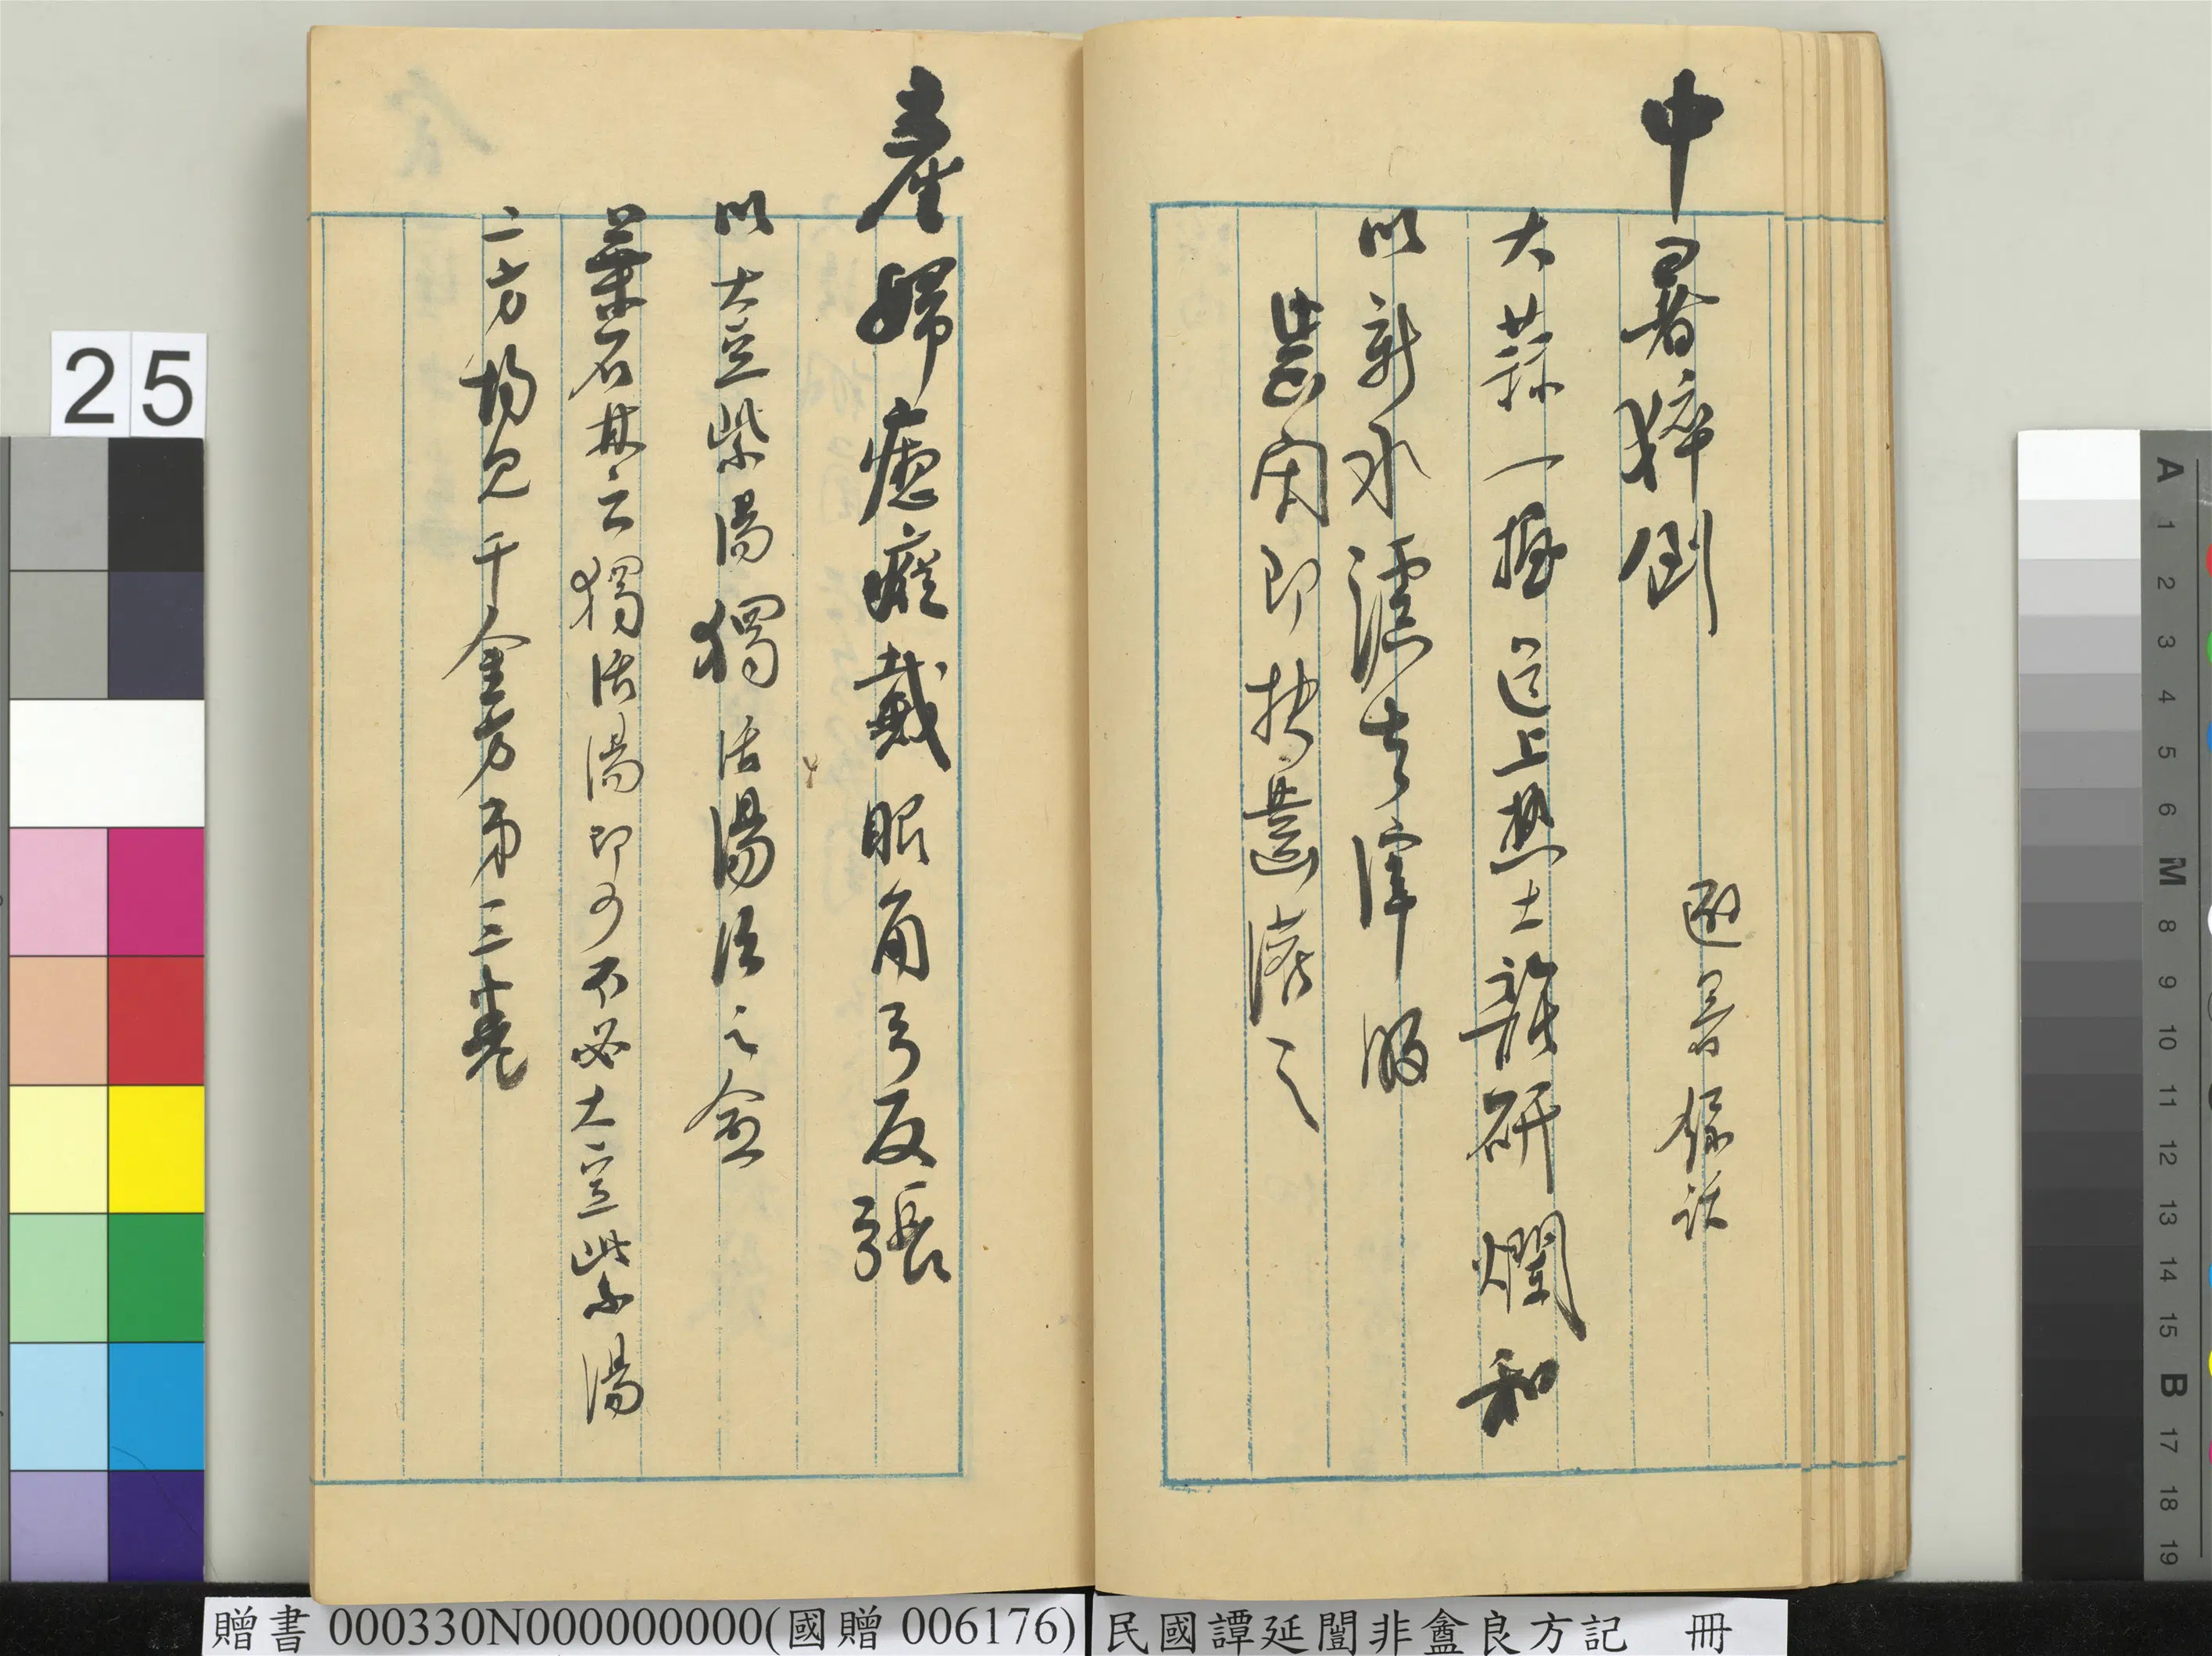 中暑猝倒
避暑録話
大蒜一握道上熱土雜研爛和
以新水濾去滓服
昏閉即抉齒灌之
產婦瘛瘲戴眼角弓反張
以大豆紫湯獨活湯治之愈
葉石林云獨活湯即可不必大豆紫湯
二方均見千金方第三卷
25
A
1
2
3
4
5
6
M
8
9
10
11
12
13
14
15
B
17
18
19
贈書 000330N000000000(國贈 006176)
民國譚延闓非盦良方記 冊